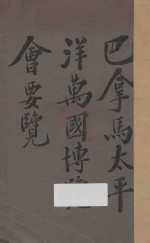 巴拿馬太平
洋萬國博覽
會要覽